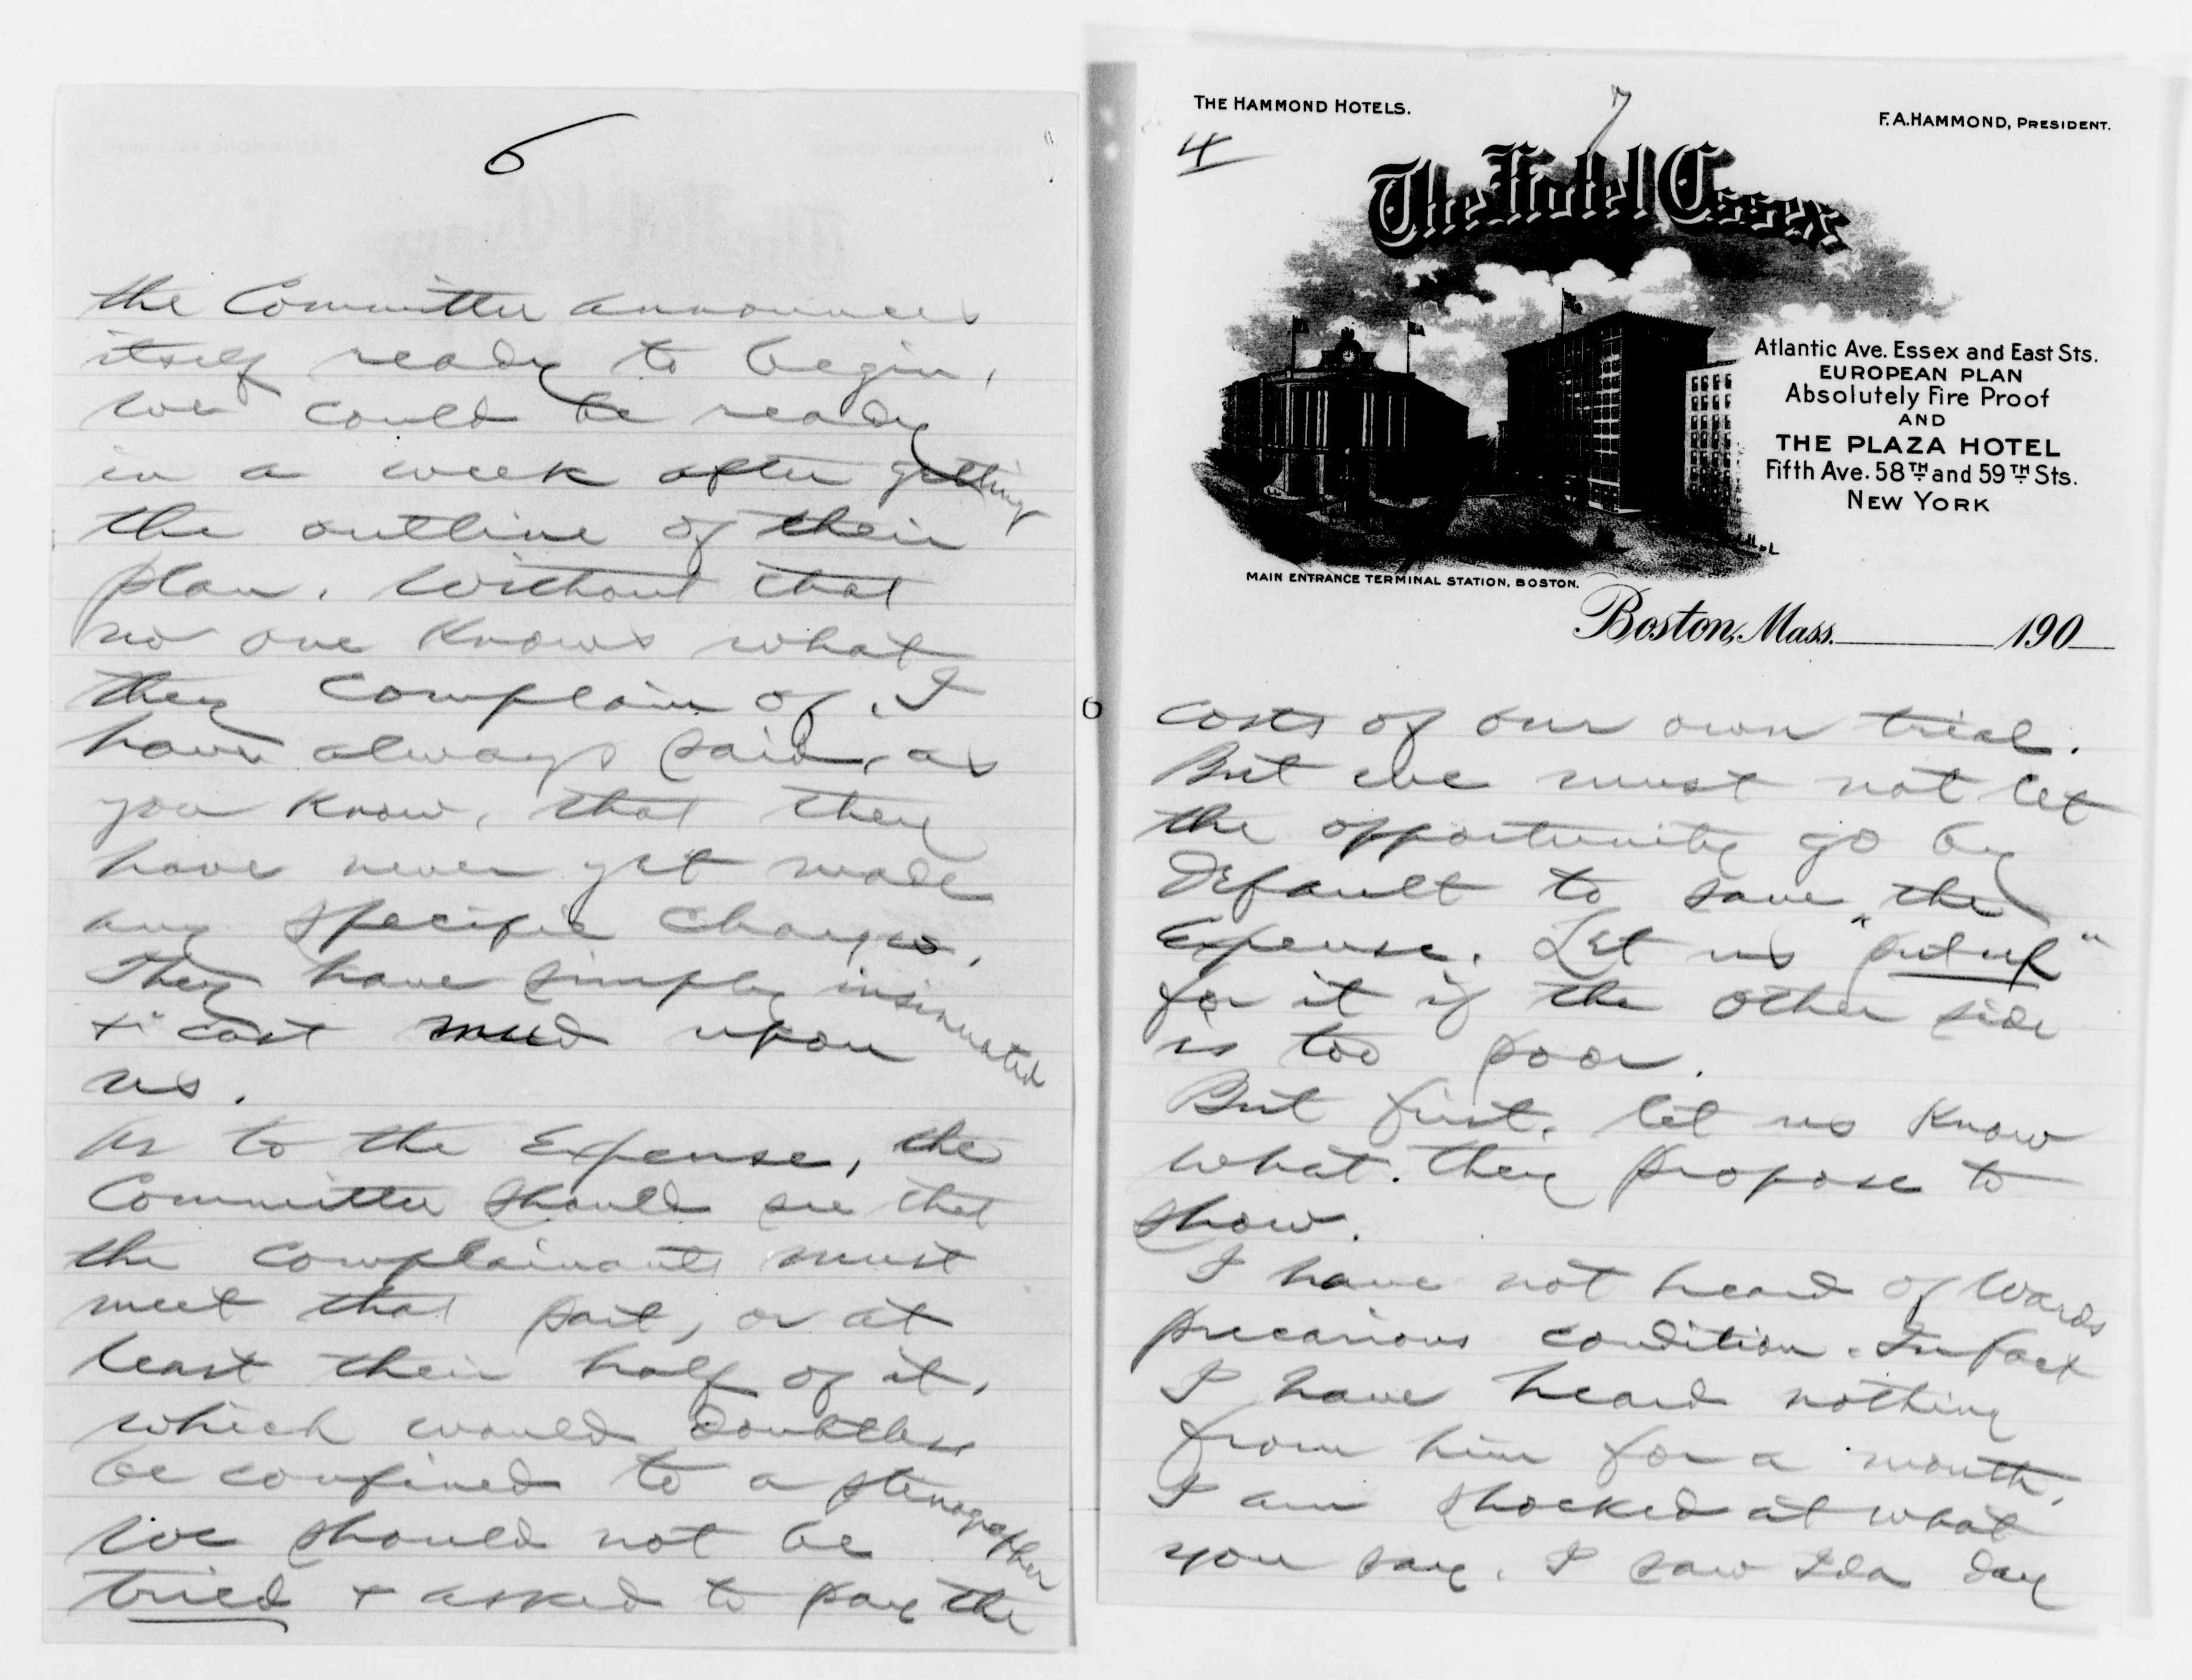 6
the Committee announces
itself ready to begin,
we could be ready
in a week after getting
the outline of their
plan. Without that
no one knows what
they complain of. I
have always said, as
you know, that they
have never yet made
any specific charges.
They have simply insinuated
+ cast mud upon
us.
As to the Expense, the
Committee should see that
the complainants must
meet that part, or at
least their half of it,
which would doubtless
be confined to a stenographer
We should not be
tried + asked to pay the
THE HAMMOND HOTELS.
7
F.A.HAMMOND, PRESIDENT.
4
The Hotel Essex
Atlantic Ave. Essex and East Sts.
EUROPEAN PLAN
Absolutely Fire Proof
AND
THE PLAZA HOTEL
Fifth Ave. 58TH and 59TH Sts.
NEW YORK
MAIN ENTRANCE TERMINAL STATION, BOSTON.
Boston, Mass. 190
costs of our own trial.
But we must not let
the opportunity go by
Default to save the
Expense. Let us "put up"
for it if the other side
is too poor.
But first, let us know
what they propose to
show.
I have not heard of Wards
precarious condition. In fact
I have heard nothing
from him for a month.
I am shocked at what
you say. I saw Ida day